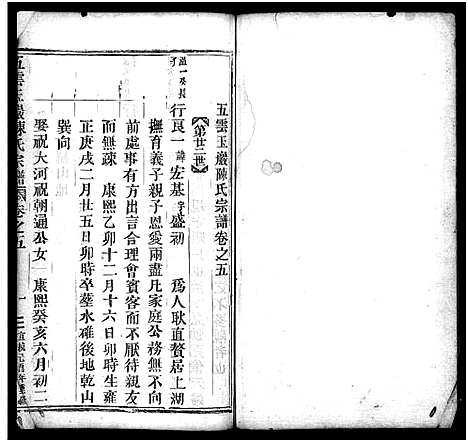 五雲玉巖陳氏宗譜卷之五
第廿二世
溫一癸長子
行良一諱宏基字盛初　為人耿直贅居上湖
撫育義子親子恩愛兩盡凡家庭公務無不向
前處事有方出言合理會賓客以不厭待親友
而無疎　康熙乙卯十二月十六日卯時生雍
正庚戌二月廿五日卯時卒墓水碓後地乾山
巽向
娶祝大河祝朝通公女　康熙癸亥六月初二
五雲玉巖陳氏宗譜　卷之五　一